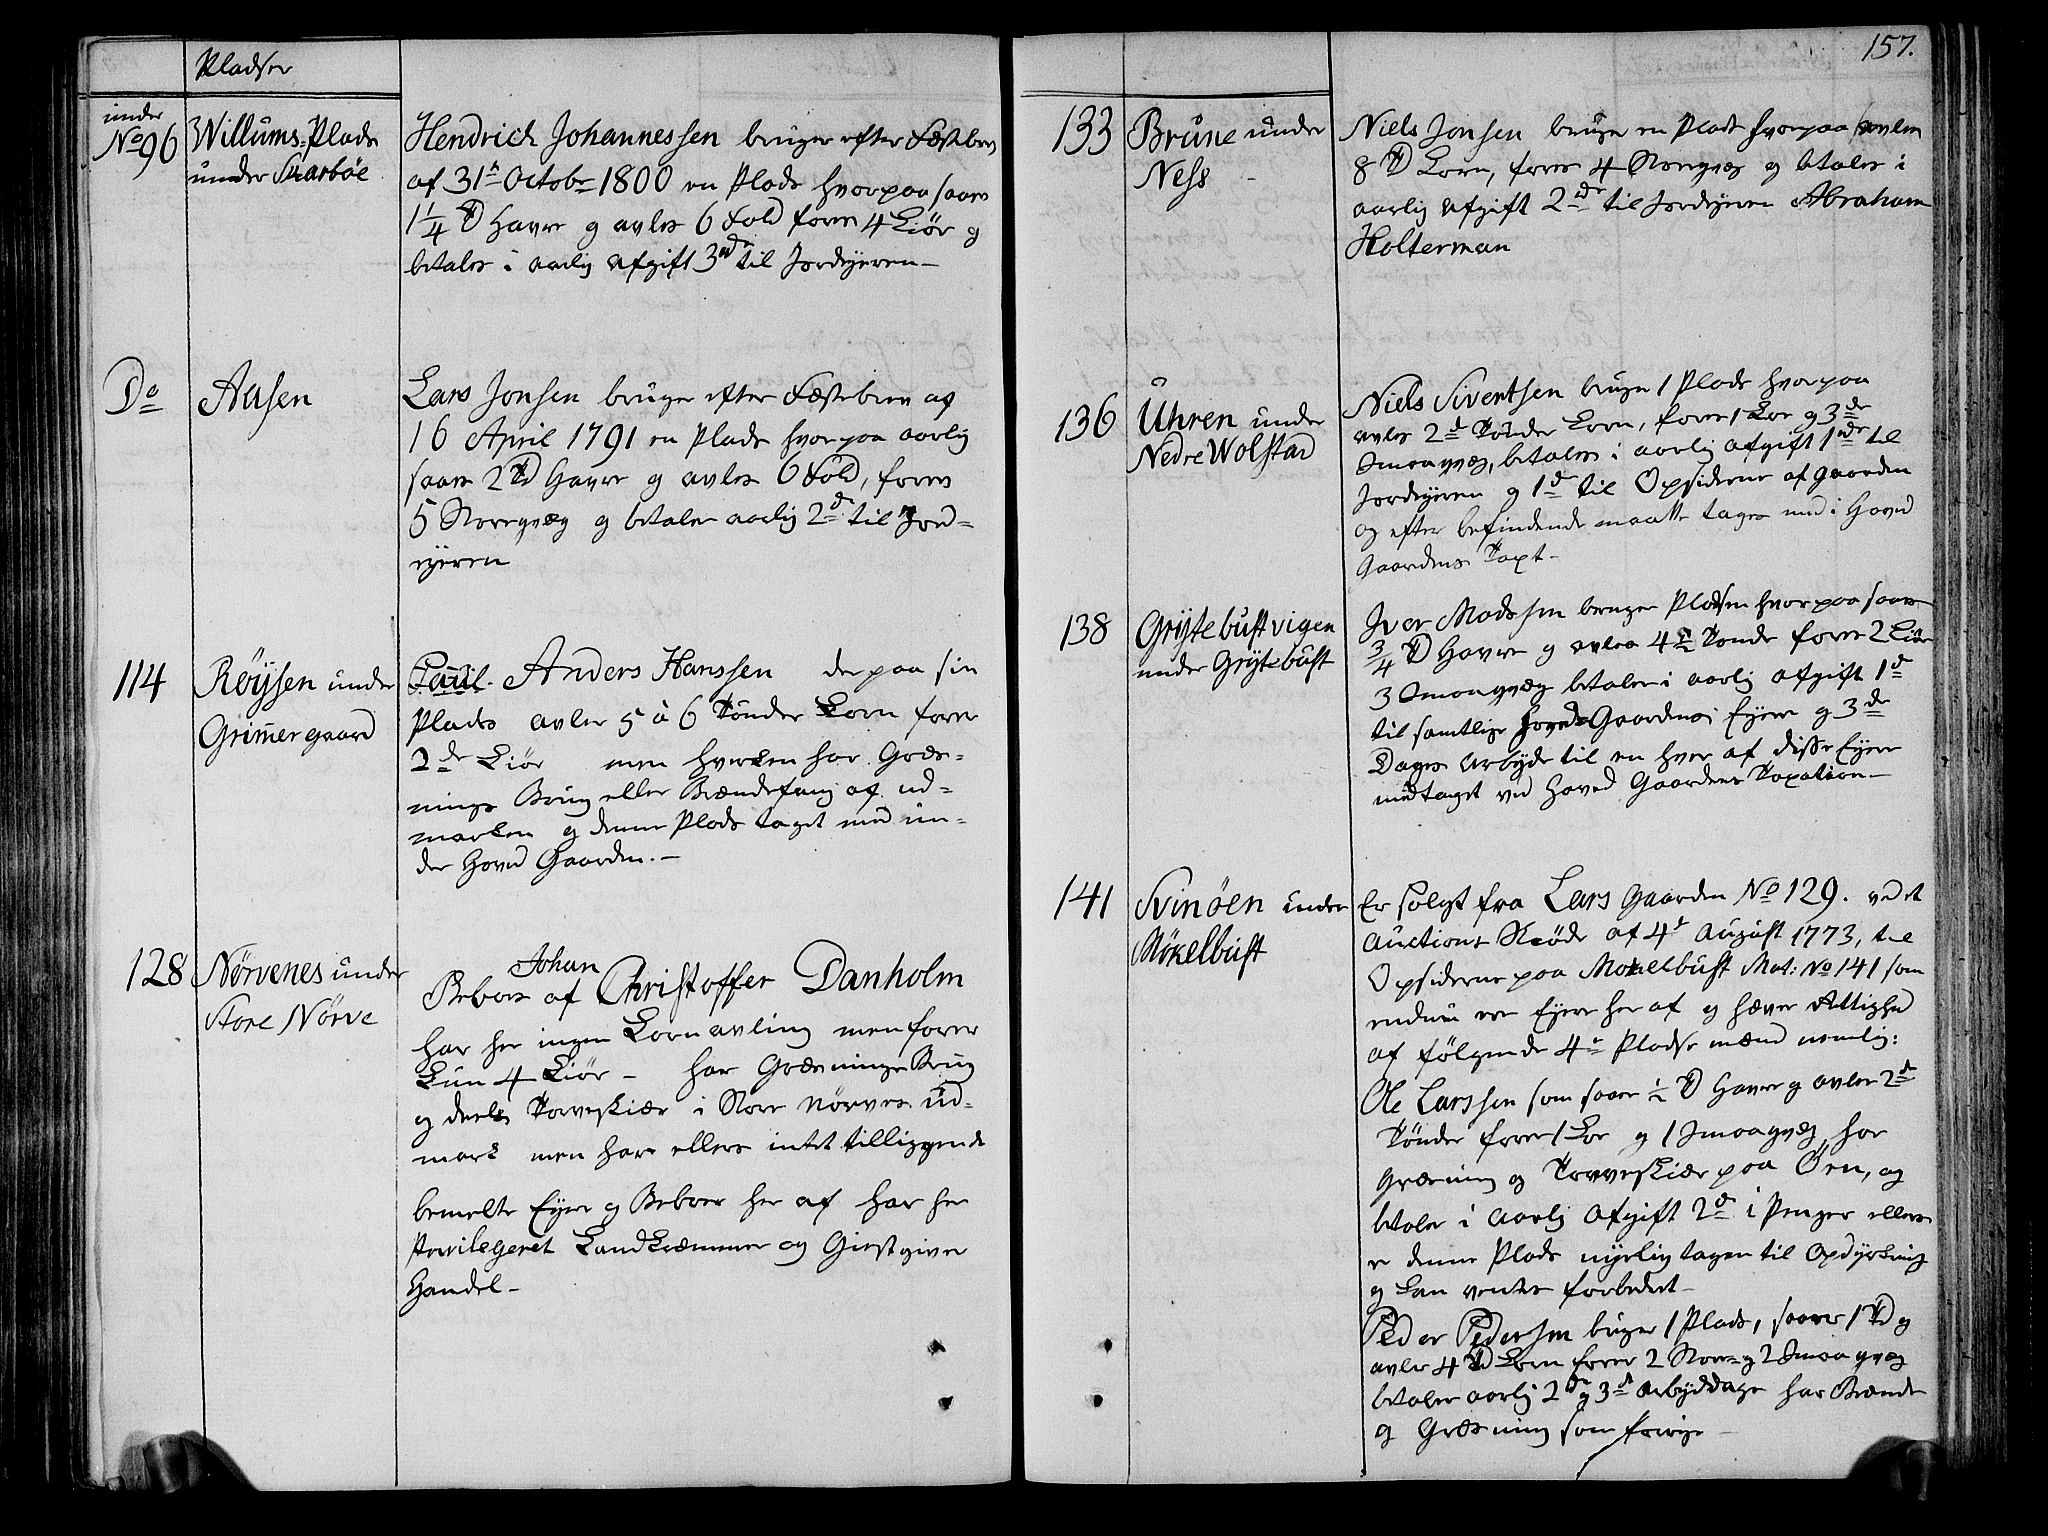 Pladser
under
No 96 Willums-Plads
under Skarbøe
Hendrich Johannessen bruger efter Fæstebrev
af 31te Octobr 1800 en Plads hvorpaa saaes
1 1/4 Td Havre og avles 6 Fold foder 4 Kiør og
betales i aarlig afgift 3rd til Jordejeren –
Do
Aasen
Lars Jonsen bruger efter Fæstebrev af
16 April 1791 en Plads hvorpaa aarlig
saaes 2 Td Havre og avles 6 Fold, foder
5 Storeqvæg og betaler aarlig 2rd til Jord-
ejeren
114
Røysen under
Grimergaard
Paul Anders Hanssen der paa sin
Plads avler 5 à 6 Tønder Korn foder
2de Kiør men hverken har Græs-
nings Brug eller Brændefang af ud-
marken og denne Plads taget med un-
der Hoved Gaarden. –
128
Nørvenes under
Store Nørve
Johan
Beboes af Christoffer Danholm
har her ingen Kornavling men foder
kun 4 Kiør – har Græsninge Brug
og deels Torveskiær i Store Nørves Ud-
mark men har ellers intet tilliggende
bemelte Ejer og Beboer her af har her
Privilegeret Landkræmmer og Giestgiver
Handel –
157.
133
Brune under
Ness
Niels Jonsen bruger en Plads hvorpaa avles
8 Td Korn, foder 4 Storeqvæg og betaler i
aarlig afgift 2rd til Jordejeren Abraham
Holterman
136
Uhren under
Nedre Wolstad
Niels Sivertsen bruger 1 Plads hvorpaa
avles 2de Tønder Korn, foder 1 Koe og 3de
Smaaqvæg, betales i aarlig afgift 1rd til
Jordejeren og 1rd til Opsiderne af gaarden
og efter befindende maatte tages med i Hoved
Gaardens Taxt –
138
Grytebustvigen
under Grytebust
Iver Madssen bruger Pladsen hvorpaa saaes
3/4 Td Havre og avles 4re Tønde foder 2 Kiør
3 Smaaqvæg betaler i aarlig afgift 1rd
til samtlige Hoved Gaardens Ejere og 3de
Dages Arbejde til en hver af disse Ejere
medtaget ved Hoved Gaardens Taxation –
141
Svinøen under
Mokelbust
Er solgt fra Lars gaarden No 129. ved et
Auctions Skiøde af 4de August 1773, til
Opsiderne paa Mokelbust Mat: No 141 som
endnu ere Ejere her af og hæver Rettighed
af følgende 4re Pladse mænd nemlig:
Ole Larssen som saaer 1/2 Td Havre og avler 2de
Tønder foder 1 Koe og 1 Smaaqvæg, har
Græsning og Torveskiær paa Øen, og
betaler i aarlig Afgift 2rd i Penger ellers
er denne Plads nyelig tagen til Opdyrkning
og kan ventes forbedret –
Peder Pedersen bruger 1 Plads, saaer 1 Td og
avler 4 Td Korn foder 2 Store- og 2 Smaaqvæg
betaler aarlig 2rd og 3de Arbejddage har Brænde
og Græsning som forrige –